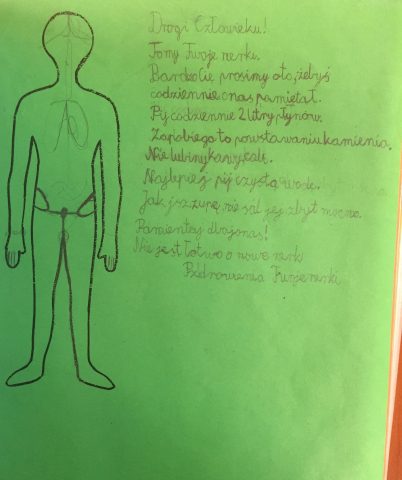 Drogi Człowieku!
To my Twoje nerki.
Bardzo Cię prosimy o to, żebyś
codziennie o nas pamiętał.
Pij codziennie 2 litry płynów.
Zapobiega to powstawaniu kamienia.
Nie lubimy kawy i coli.
Najlepiej pij czystą wodę.
Jak jesz zupę nie sól jej zbyt mocno.
Pamientej dbaj o nas!
Nie jest łatwo o nowe nerki
Pozdrowienia Twoje nerki